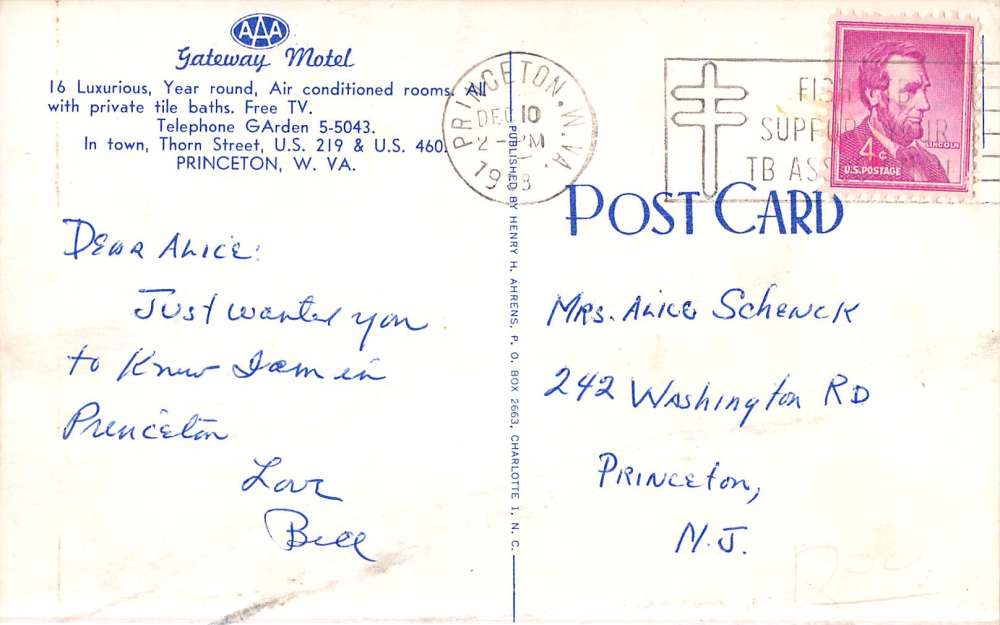 AAA
Gateway Motel
16 Luxurious, Year round, Air conditioned rooms. All
with private tile baths. Free TV.
Telephone GArden 5-5043.
In town, Thorn Street, U.S. 219 & U.S. 460.
PRINCETON, W. VA.
Dear Alice:
Just wanted you
to know I am in
Princeton
Love
Bill
PUBLISHED BY HENRY H. AHRENS, P. O. BOX 2663, CHARLOTTE 1, N. C.
PRINCETON, W. VA.
DEC 10
PM
TB
4c
LINCOLN
U.S. POSTAGE
POST CARD
Mrs. Alice Schenck
242 Washington RD
Princeton,
N.J.